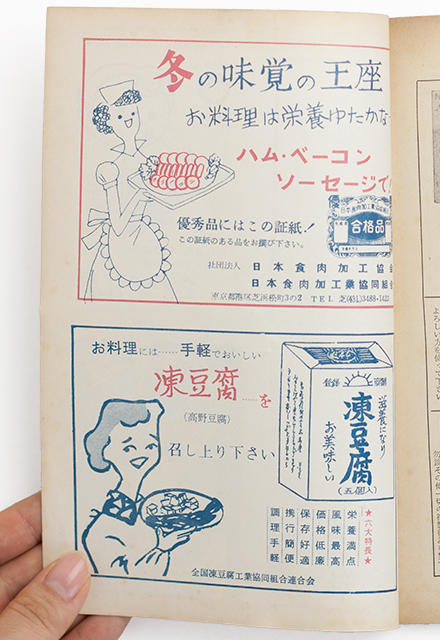 冬の味覚の王座
お料理は栄養ゆたかな
ハム・ベーコン
ソーセージで
優秀品にはこの証紙!
この証紙のある品をお選び下さい。
合格品
社団法人 日本食肉加工協会
日本食肉加工業協同組合
東京都港区芝浜松町3の2 TEL 芝(431)3488・1423
お料理には……手軽でおいしい
凍豆腐……を
(高野豆腐)
召し上り下さい
登録
滋養になり
凍豆腐
お美味しい
(五個入)
★六大特長★
栄養満点
風味最高
価格低廉
保存好適
携行簡便
調理手軽
全国凍豆腐工業協同組合連合会